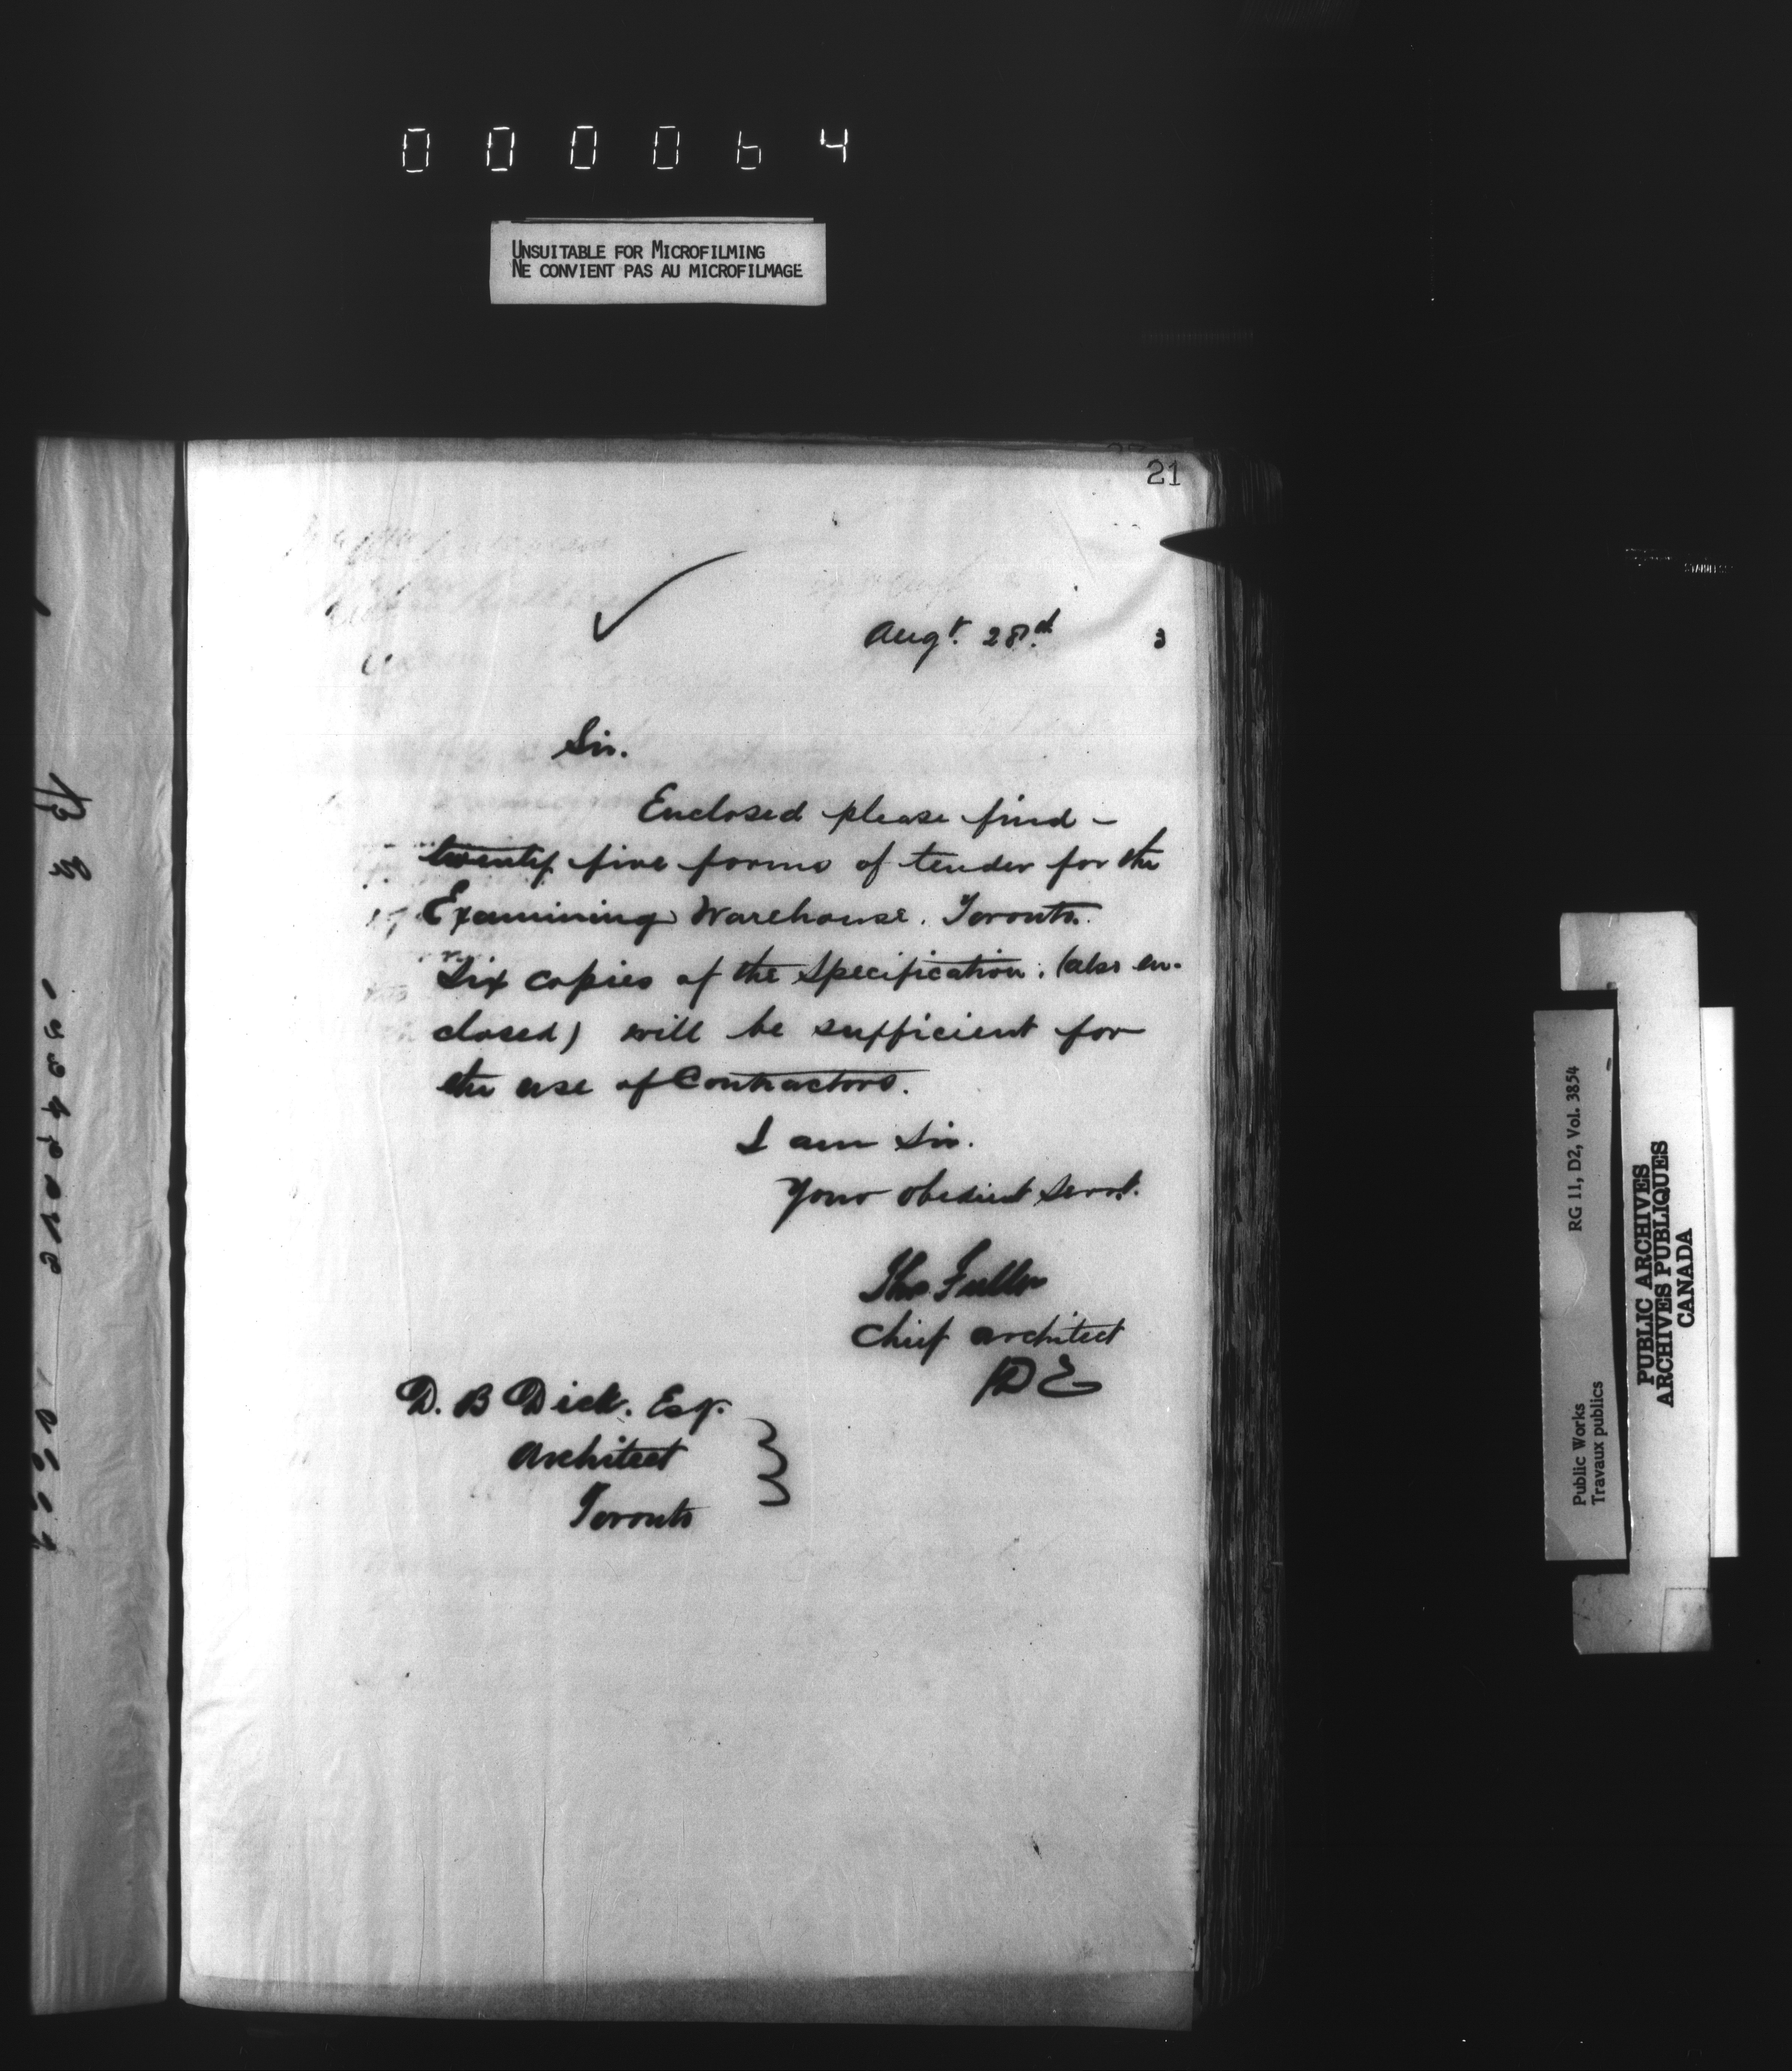 000064
UNSUITABLE FOR MICROFILMING
NE CONVIENT PAS AU MICROFILMAGE
21
Augt. 28d. 3
Sir.
Enclosed please find –
twenty five forms of tender for the
Examining Warehouse. Toronto.
Six copies of the Specification. (also en-
closed) will be sufficient for
the use of Contractors.
I am Sir.
Your obedient Servt.
Thos Fuller
Chief Architect
DE
D. B Dick. Esqr.
Architect
Toronto
RG 11, D2, Vol. 3854
Public Works
Travaux publics
PUBLIC ARCHIVES
ARCHIVES PUBLIQUES
CANADA